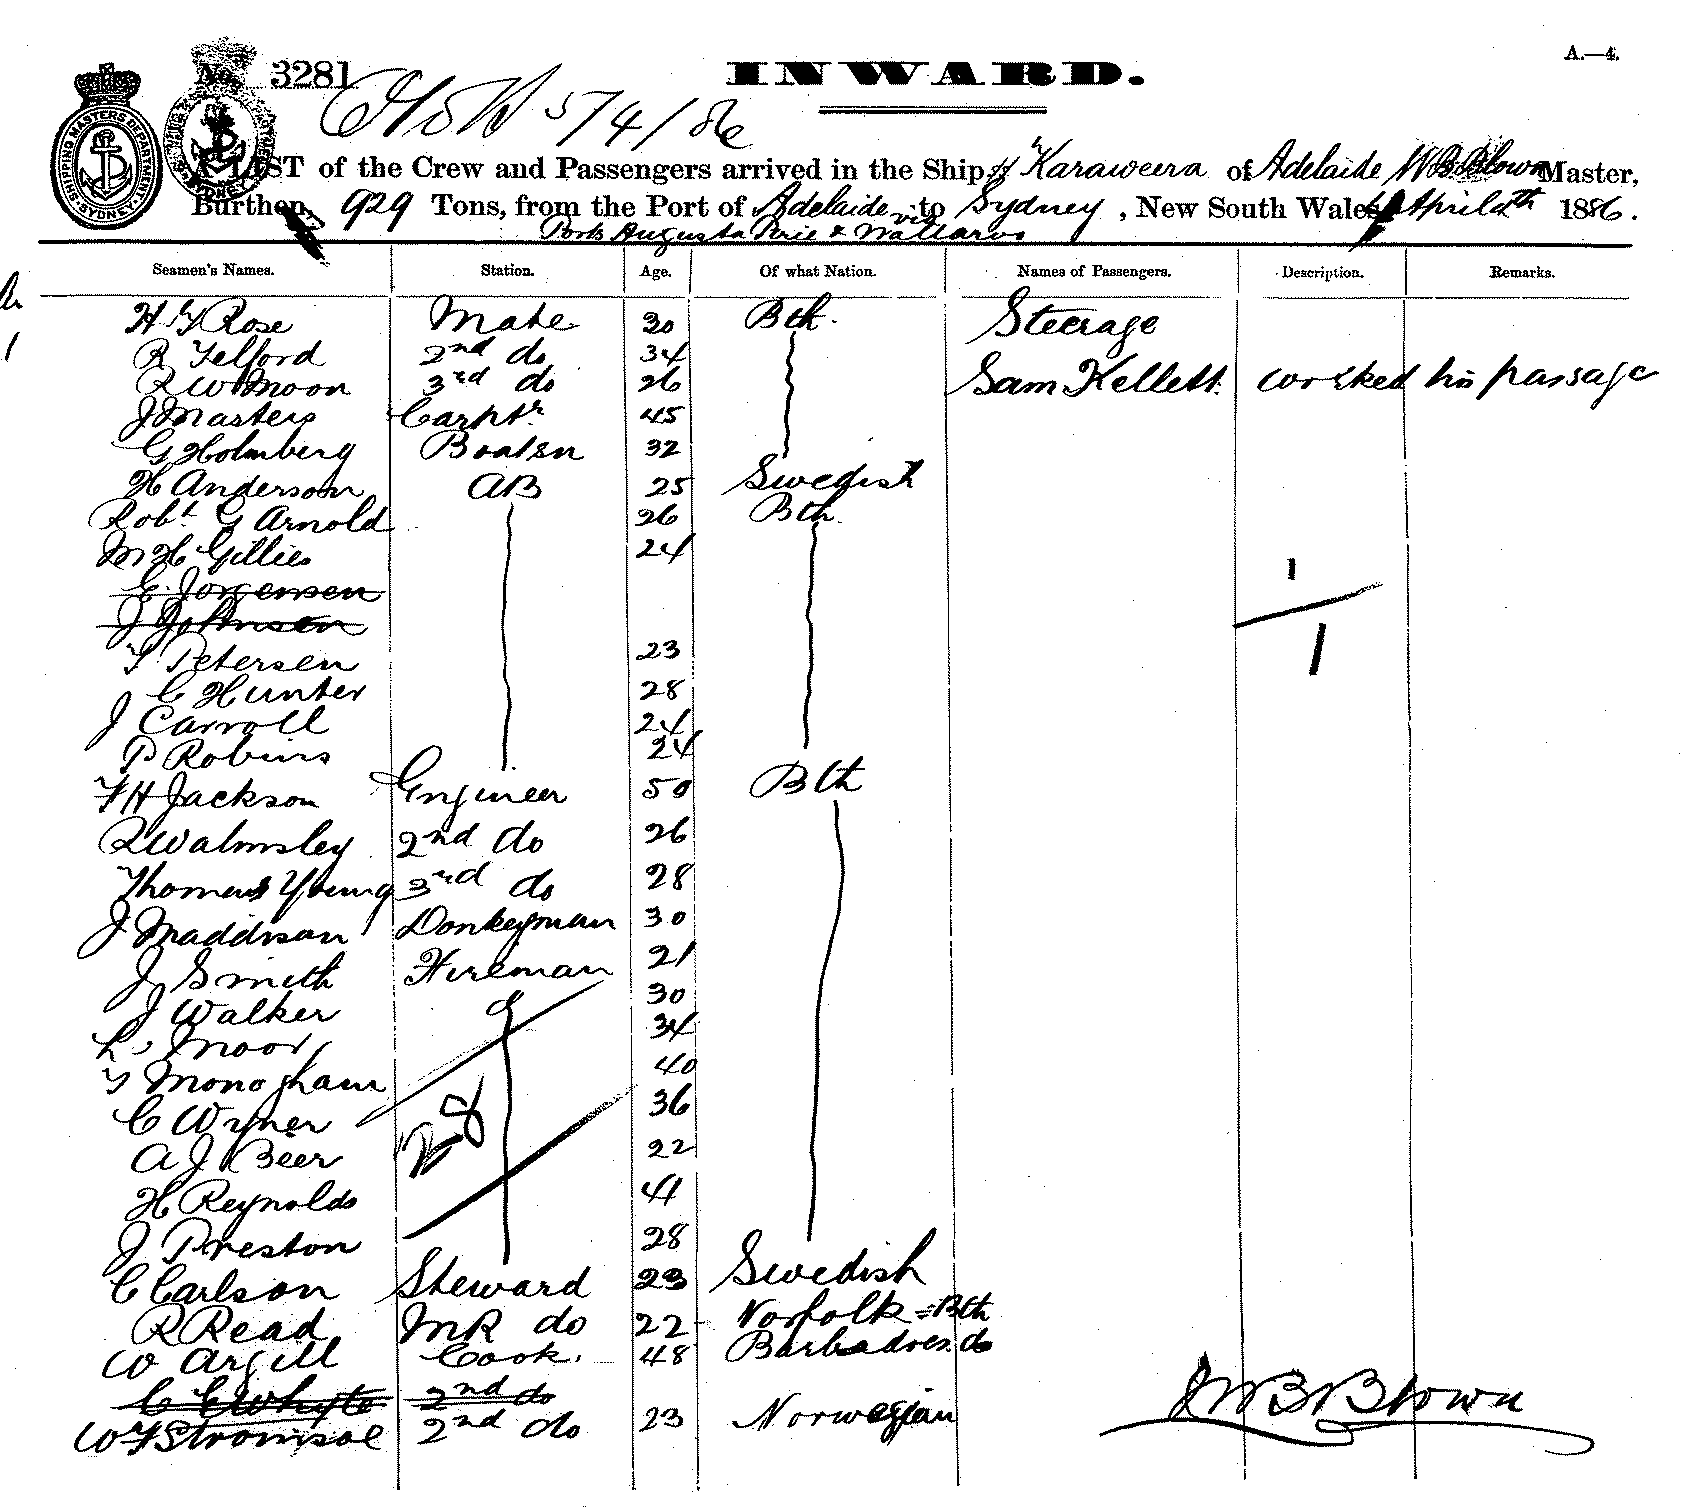 A.—4.
No. 3281
INWARD.
5/4/86
SHIPPING MASTERS DEPARTMENT SYDNEY
A LIST of the Crew and Passengers arrived in the Ship Karaweera of Adelaide W B Blown Master,
Burthen, 929 Tons, from the Port of Adelaide via to Sydney, New South Wales, April 1886.
Ports Augusta Pirie & Wallaroo
Seamen's Names. Station. Age. Of what Nation. Names of Passengers. Description. Remarks.
H Y Rose Mate 30 Bth. Steerage
R Telford 2nd do 34
R W Moon 3rd do 26 Sam Kellett worked his passage
J Masters Carptr 45
G Holmberg Boatsn 32
H Anderson AB 25 Swedish
Robt G Arnold 26 Bth
M H Gillies 24
E Jorgensen
J Johnsen
Petersen 23
C Hunter 28
J Carroll 24
P Robins 24
Jackson Engineer 50 Bth
R Walmsley 2nd do 26
Thomas Young 3rd do 28
J Maddison Donkeyman 30
J Smith Fireman 21
J Walker 30
Moor 34
Monogham 40
C Wyner 36
28
A J Beer 22
H Reynolds 41
J Preston 28
C Carlson Steward 23 Swedish
R Read MR do 22 Norfolk = Bth
W Argill Cook. 48 Barbadoes do
C E Whyte 2nd do
W F Stromsoe 2nd do 23 Norwegian
J W B Blown